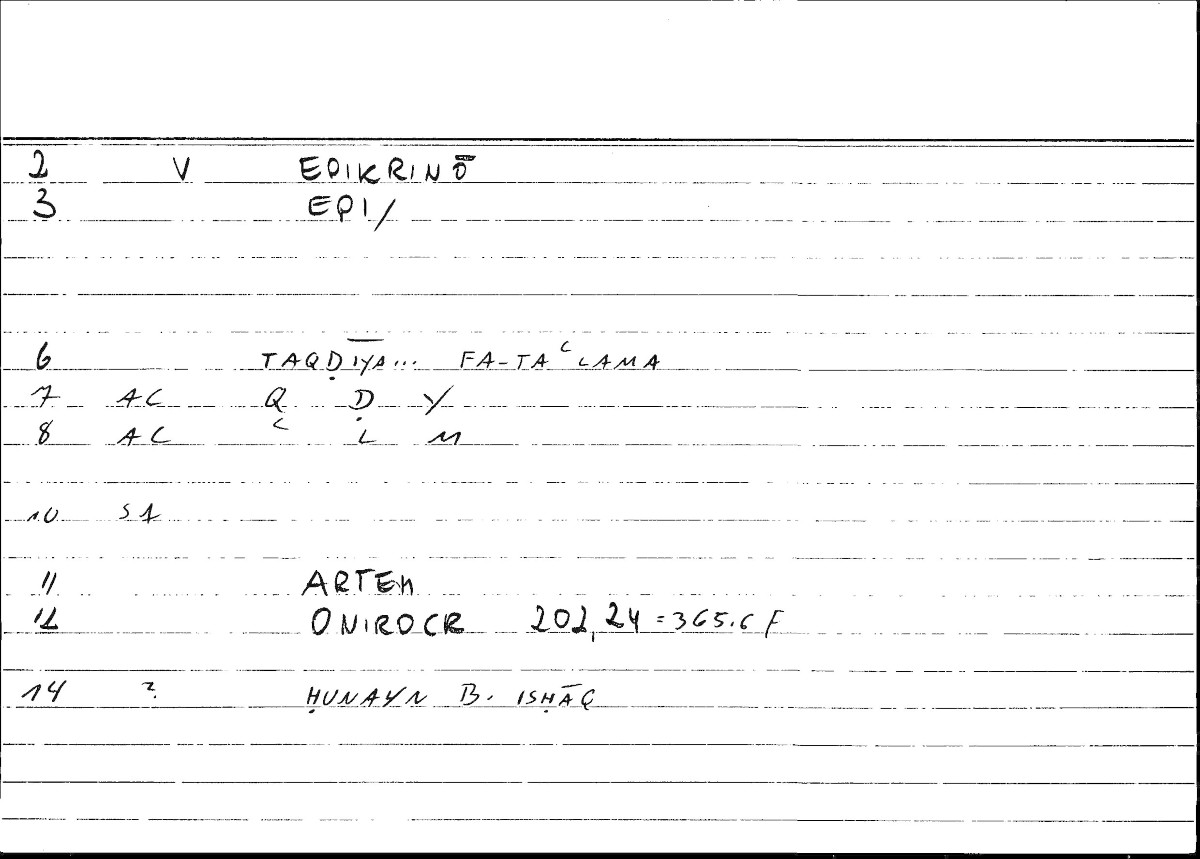 2 V EPIKRINŌ
3 EPI/
6 TAQḌĪYA... FA-TAʿLAMA
7 AC Q Ḍ Y
8 AC ʿ L M
10 S1
11 ARTEM
12 ONIROCR 202,24 = 365.6 F
14 2. ḤUNAYN B. ISḤĀQ